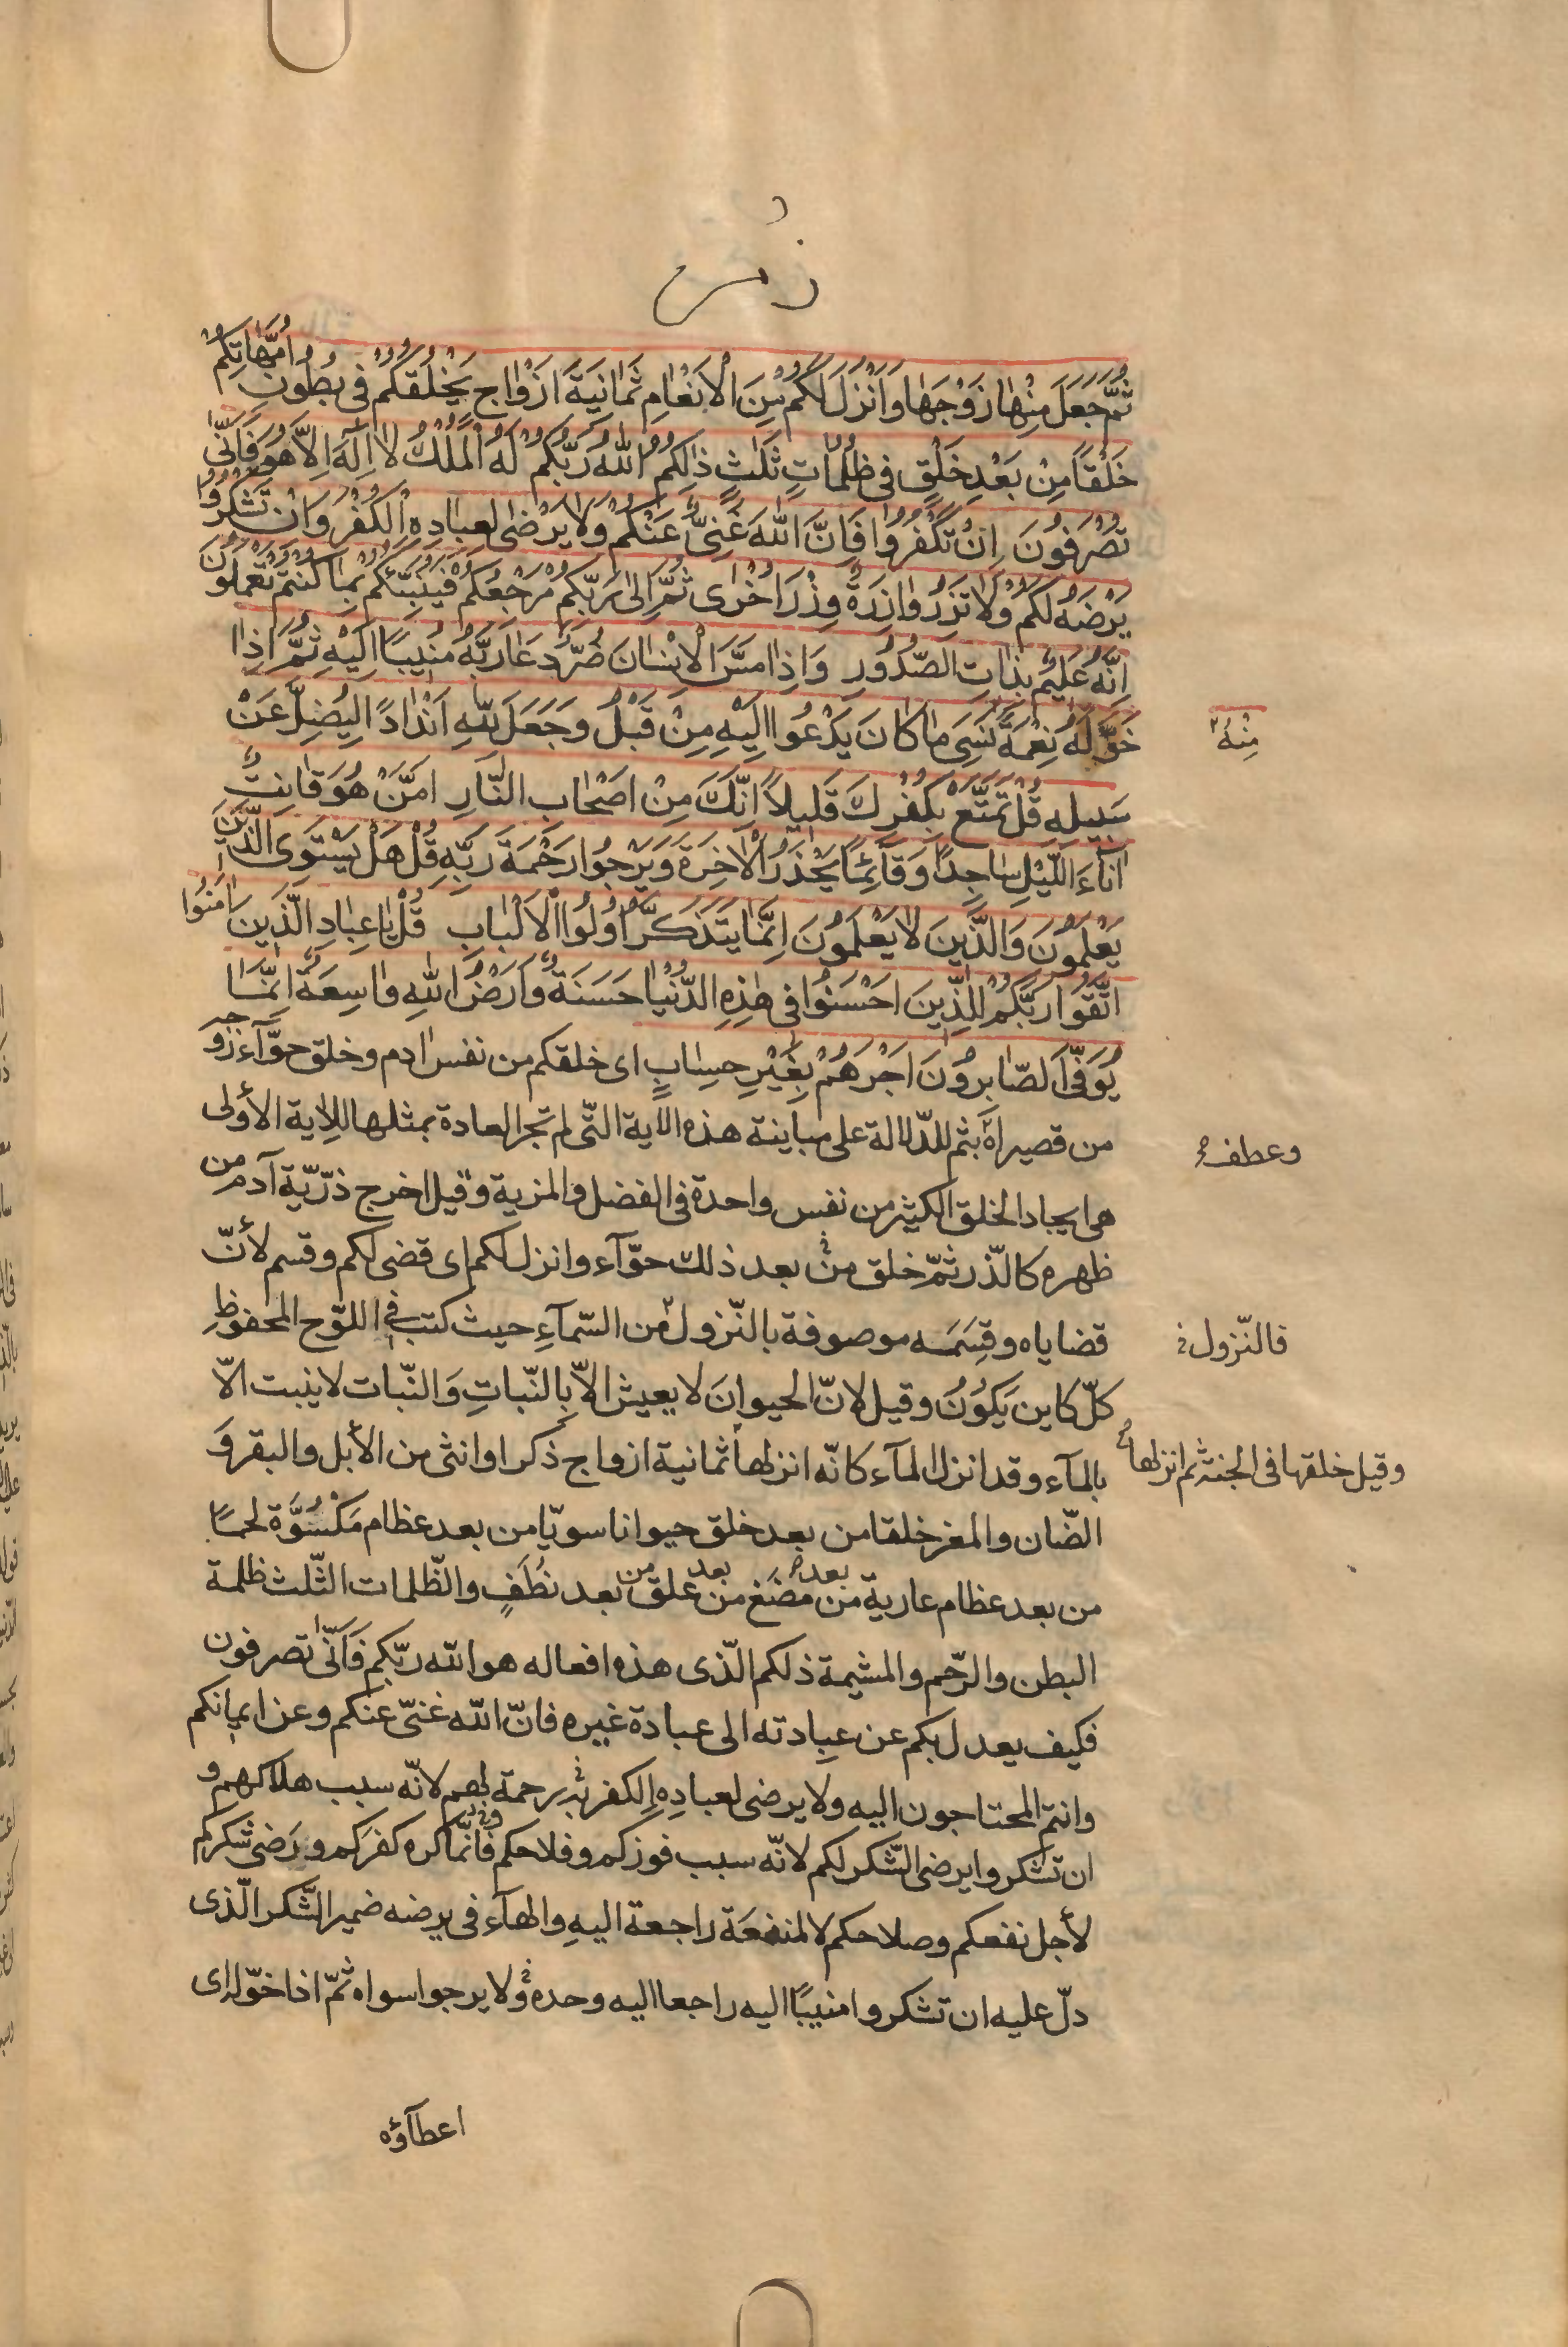 زمر
ثُمَّ جَعَلَ مِنْهَا زَوْجَهَا وَاَنْزَلَ لَكُمْ مِنَ الْاَنْعَامِ ثَمَانِيَةَ اَزْوَاجٍ يَخْلُقُكُمْ فِى بُطُونِ اُمَّهَاتِكُمْ
خَلْقًا مِنْ بَعْدِ خَلْقٍ فِى ظُلُمَاتٍ ثَلَثٍ ذَالِكُمُ اللّٰهُ رَبُّكُمْ لَهُ الْمُلْكُ لَا اِلٰهَ اِلَّا هُوَ فَاَنّٰى
تُصْرَفُونَ اِنْ تَكْفُرُوا فَاِنَّ اللّٰهَ غَنِىٌّ عَنْكُمْ وَلَا يَرْضٰى لِعِبَادِهِ الْكُفْرَ وَاِنْ تَشْكُرُوا
يَرْضَهُ لَكُمْ وَلَا تَزِرُ وَازِرَةٌ وِزْرَ اُخْرٰى ثُمَّ اِلٰى رَبِّكُمْ مَرْجِعُكُمْ فَيُنَبِّئُكُمْ بِمَا كُنْتُمْ تَعْمَلُونَ
اِنَّهُ عَلِيمٌ بِذَاتِ الصُّدُورِ وَاِذَا مَسَّ الْاِنْسَانَ ضُرٌّ دَعَا رَبَّهُ مُنِيبًا اِلَيْهِ ثُمَّ اِذَا
خَوَّلَهُ نِعْمَةً نَسِىَ مَا كَانَ يَدْعُوا اِلَيْهِ مِنْ قَبْلُ وَجَعَلَ لِلّٰهِ اَنْدَادًا لِيُضِلَّ عَنْ
مِنْهُ
سَبِيلِهِ قُلْ تَمَتَّعْ بِكُفْرِكَ قَلِيلًا اِنَّكَ مِنْ اَصْحَابِ النَّارِ اَمَّنْ هُوَ قَانِتٌ
اٰنَاءَ اللَّيْلِ سَاجِدًا وَقَآئِمًا يَحْذَرُ الْاٰخِرَةَ وَيَرْجُوا رَحْمَةَ رَبِّهِ قُلْ هَلْ يَسْتَوِى الَّذِينَ
يَعْلَمُونَ وَالَّذِينَ لَا يَعْلَمُونَ اِنَّمَا يَتَذَكَّرُ اُولُوا الْاَلْبَابِ قُلْ يَا عِبَادِ الَّذِينَ اٰمَنُوا
اتَّقُوا رَبَّكُمْ لِلَّذِينَ اَحْسَنُوا فِى هٰذِهِ الدُّنْيَا حَسَنَةٌ وَاَرْضُ اللّٰهِ وَاسِعَةٌ اِنَّمَا
يُوَفَّى الصَّابِرُونَ اَجْرَهُمْ بِغَيْرِ حِسَابٍ اى خلقكم من نفس ادم وخلق حوّآء زوجه
من قصيراه بثم للدّلالة على مباينة هذه الاية الّتى لم تجر العادة بمثلها للاية الأولى
وعطف
هى ايجاد الخلق الكثير من نفس واحدة فى الفضل والمزية وقيل اخرج ذرّيّة آدم من
ظهره كالذّر ثمّ خلق منه بعد ذلك حوّآء وانزل لكم اى قضى لكم وقسم لأنّ
قضاياه وقِسَمَه موصوفة بالنّزول من السّمآءِ حيث كتب فى اللّوح المحفوظِ
فالنّزول
كلّ كاين يَكُونُ وقيل لانّ الحيوانَ لا يعيش الاّ بِالنّباتِ وَالنّبات لا ينبت الاّ
بالمآء وقد انزل المآء كانّه انزلها ثمانية ازواج ذكرا وانثى من الأبل والبقر وَ
وقيل خلقها فى الجنة ثم انزلها
الضّان والمعز خلقا من بعد خلق حيوانا سويّا من بعد عظام مَكْسُوَّة لحمًا
من بعد عظام عارية من بعد مضَغ من بعد علق من بعد نُطَفٍ والظّلمات الثّلث ظلمة
البطن والرّحم والمشيمة ذلكم الّذى هذه افعاله هو الله ربّكم فَاَنّٰى تصرفون
فكيف يعدل بكم عن عبادته الى عبادة غيره فانّ الله غنىّ عنكم وعن ايمانكم
وانتم المحتاجون اليه ولا يرضى لعبادِهِ الكفر رحمة لهم لانّه سبب هلاكهم و
ان تشكروا يرضى الشّكر لكم لانّه سبب فوزكم وفلاحكم فانّما كره كفركم ورَضى شكركم
لأجل نفعكم وصلاحكم لا لمنفعَة راجعة اليهِ والهآء فى يرضه ضمير الشّكر الّذى
دلّ عليه ان تشكروا منيبًا اليه راجعا اليه وحده ولا يرجوا سواه ثمّ اذا خوّله اى
اعطآؤه